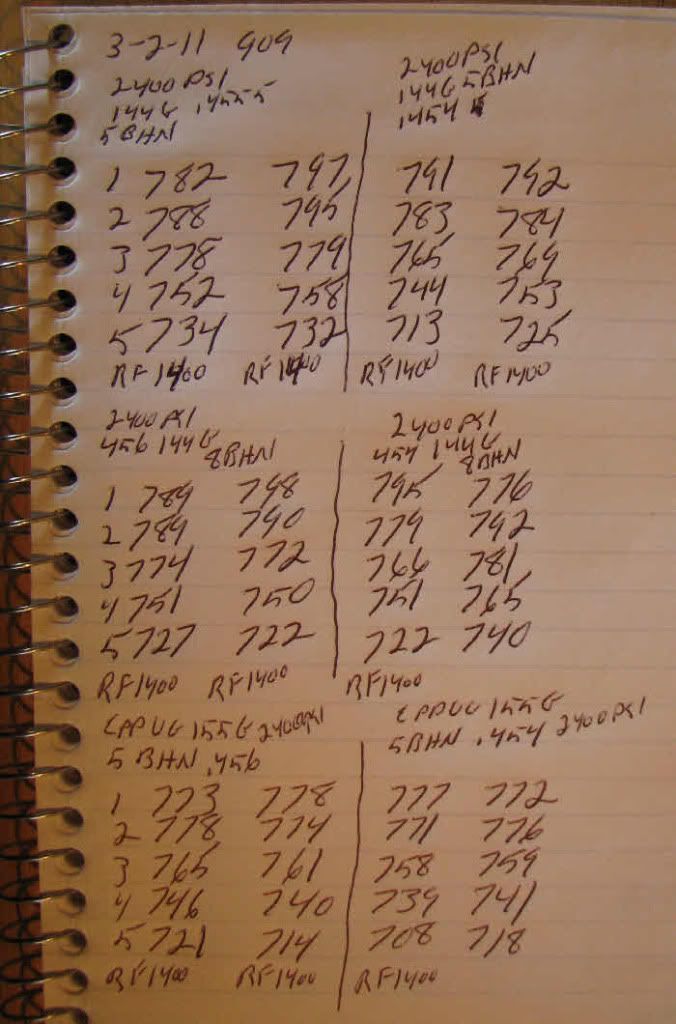 3-2-11 909
2400 PSI
144G .4555
5BHN
1 782 797
2 788 795
3 778 779
4 752 758
5 734 732
RF1400 RF1400
2400 PSI
144G 5BHN
.454
791 792
783 784
765 769
744 753
713 725
RF1400 RF1400
2400 PSI
456 144G
8BHN
1 789 798
2 789 790
3 774 772
4 751 750
5 727 722
RF1400 RF1400
2400 PSI
454 144G
8BHN
795 776
779 792
766 781
751 765
722 740
RF1400
CPPUG 155G 2400PSI
5 BHN .456
1 773 778
2 778 774
3 765 761
4 746 740
5 721 714
RF1400 RF1400
CPPUG 155G
5BHN .454 2400PSI
777 772
771 776
758 759
739 741
708 718
RF1400